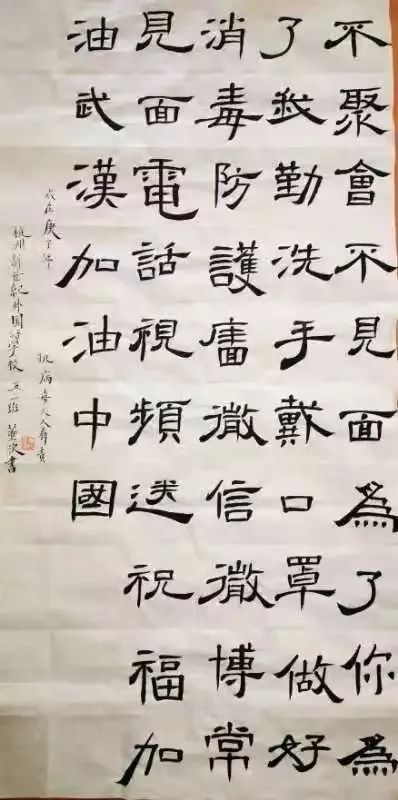 不聚會不見面為了你為
了我勤洗手戴口罩做好
消毒防護微信微博常
見面電話視頻送祝福加
油武漢加油中國
歲在庚子年 抗病毒人人有責
杭州新世紀外國語学校五一班 董書